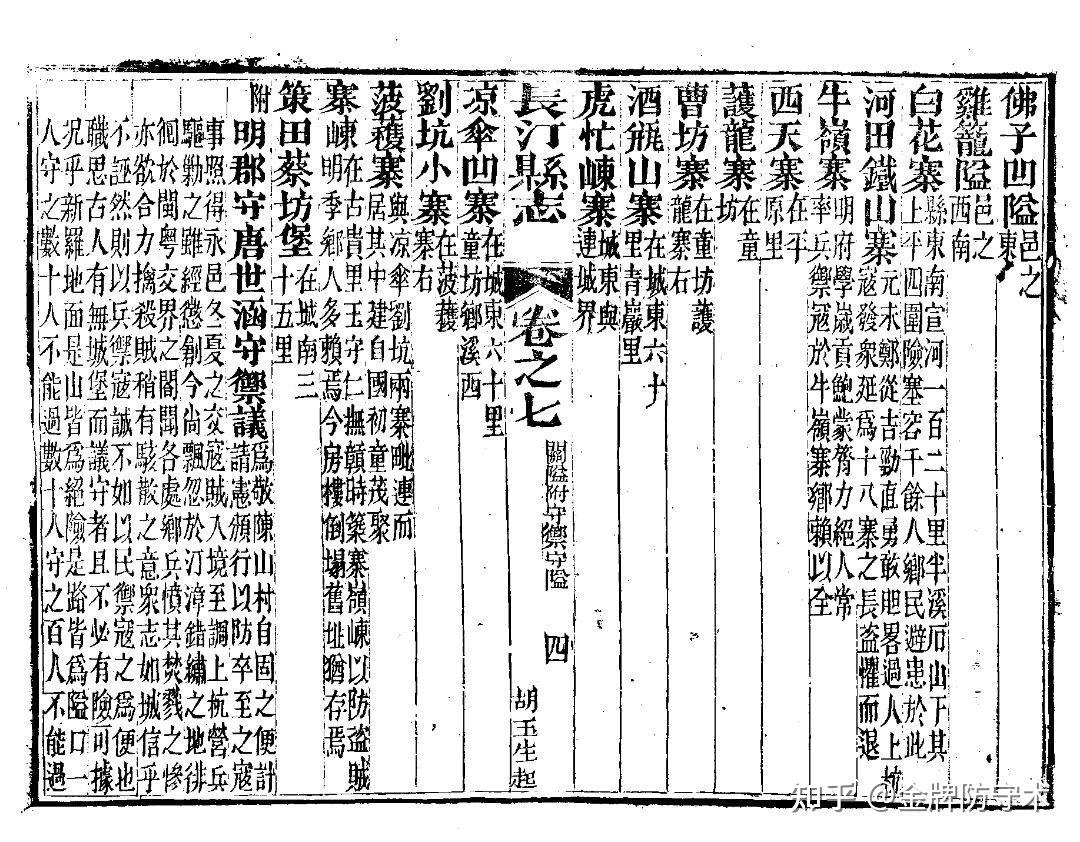 佛子凹隘邑之東
雞籠隘邑之西南
白花寨縣東南宣河一百二十里半溪后山下其上平四圍險塞容千餘人鄉民避患於此
河田鐵山寨元末鄭從吉勁直勇敢胆畧過人上杭寇發衆延爲十八寨之長盗懼而退
牛嶺寨明府學歲貢鮑蒙膂力絕人常率兵禦寇於牛嶺寨鄉賴以全
西天寨在平原里
護龍寨在童坊
曹坊寨在童坊護龍寨右
酒瓶山寨在城東六十里青巖里
虎忙崠寨城東與連城界
長汀縣志 卷之七 關隘附守禦守隘 四 胡玉生起
凉傘凹寨在城東六十里童坊鄉溪西
劉坑小寨在菠蘐寨右
菠蘐寨與凉傘劉坑兩寨毗連而居其中建自國初童茂聚
寨崠在古貴里王守仁撫贛時築寨嶺崠以防盗賊明季鄉人多賴焉今房樓倒塌舊址猶存焉
策田蔡坊堡在城南三十五里
附明郡守唐世涵守禦議爲敬陳山村自固之便計請憲頒行以防卒至之寇
事照得永邑冬憂之交寇賊入境至調上杭營兵
驅勦之雖經懲創今尚飄忽於汀漳錯繡之地徘
徊於閩粤交界之間聞各處鄉兵憤其焚戮之慘
亦欲合力擒殺賊稍有駭散之意衆志如城信乎
不誣然則以兵禦寇誠不如以民禦寇之爲便也
職思古人有無城堡而議守者且不必有險可據
况乎新羅地面是山皆爲絕險是路皆爲隘口一
人守之數十人不能過數十人守之百人不能過
知乎 @金牌防守术